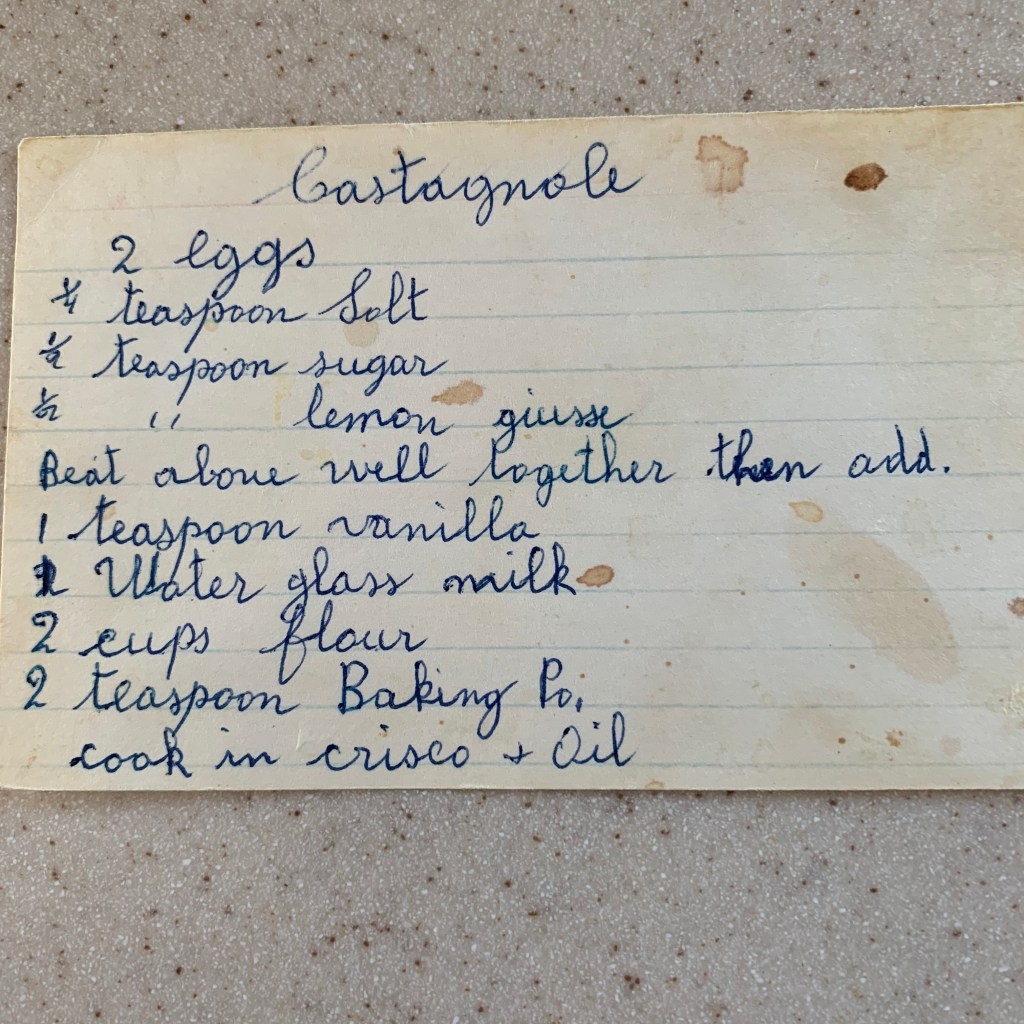 Castagnole
2 eggs
1/4 teaspoon Salt
1/2 teaspoon sugar
1/2 " lemon giusse
Beat above well together then add.
1 teaspoon vanilla
1 Water glass milk
2 cups flour
2 teaspoon Baking Po.
cook in crisco + Oil